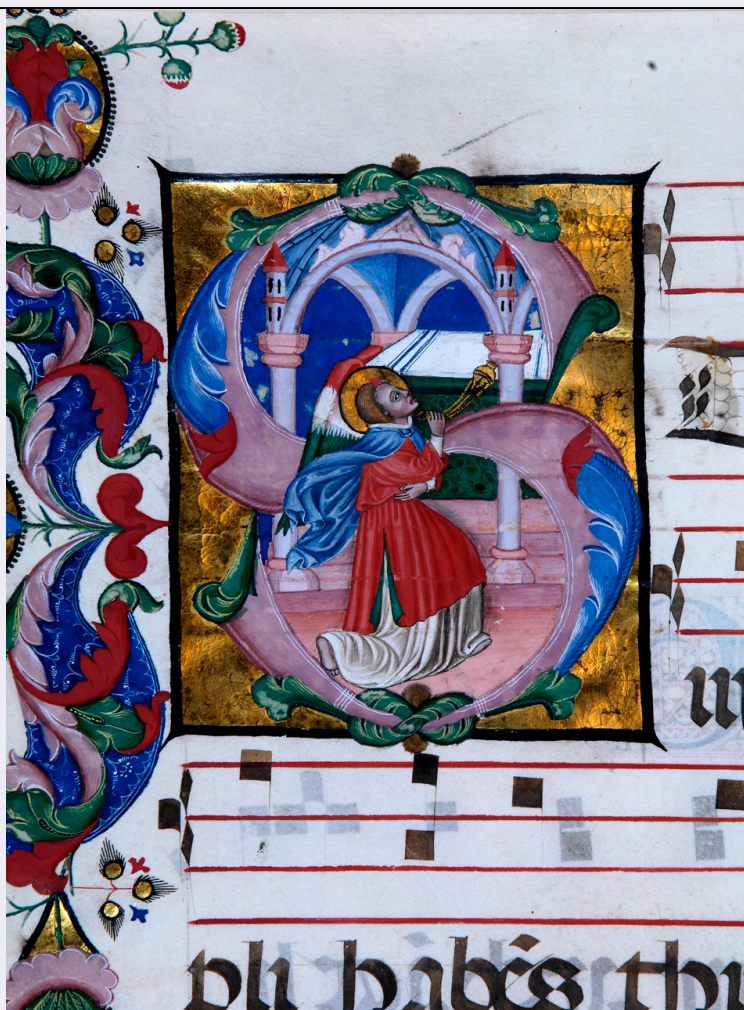 S
pli habēs thu